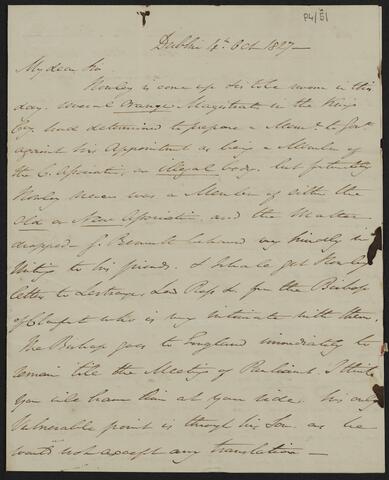 P4/51
Dublin 4th Oct 1827 —
My dear Sir
Howley is come up to take in this
day. Several Orange Magistrates in the Kings
Coy. had determined to prepare a Meml. to Govt.
against his Appointment as being a Member of
the C. Association, an illegal body. but fortunately
Howley never was a Member of either the
Old or New Association and the Matter
dropped — J. Bennett behaved very kindly in
writing to his friends. I shall get Howley
letter to Lestrange, Ld Ross &c from the Bishop
of Clonfert who is very intimate with them.
The Bishop goes to England immediately to
remain till the Meeting of Parliamt. I think
you will have him at your side. His only
vulnerable point is through his Son as he
would not accept any translation —